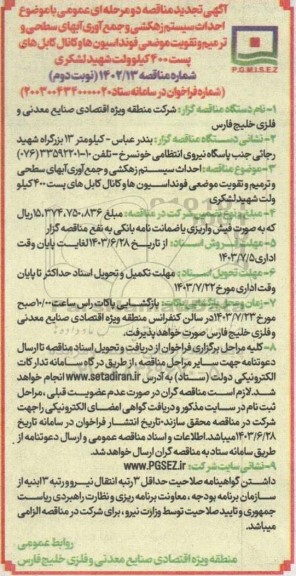 آگهی تجدید مناقصه دو مرحله ای عمومی با موضوع
احداث سیستم زهکشی و جمع آوری آبهای سطحی و
ترمیم و تقویت موضعی فونداسیون ها و کانال کابل های
پست ۴۰۰ کیلوولت شهید لشکری
شماره مناقصه ۱۴۰۲/۱۳ (نوبت دوم)
P.G.M.I.S.E.Z
۱- نام دستگاه مناقصه گزار: شرکت منطقه ویژه اقتصادی صنایع معدنی و
فلزی خلیج فارس
۲- نشانی دستگاه مناقصه گزار: بندر عباس - کیلومتر ۱۳ بزرگراه شهید
رجائی جنب پاسگاه نیروی انتظامی خونسرخ - تلفن: ۱۰-۳۳۵۹۲۲۰۱ (۰۷۶)
۳- موضوع مناقصه: احداث سیستم زهکشی و جمع آوری آبهای سطحی
و ترمیم و تقویت موضعی فونداسیون ها و کانال کابل های پست ۴۰۰ کیلو
ولت شهید لشکری
شرکت در مناقصه: مبلغ ۱۵,۳۷۴,۷۵۰,۸۳۶ ریال
که به صورت فیش واریزی یا ضمانت نامه بانکی به نفع مناقصه گزار
۵- مهلت فروش اسناد: از تاریخ ۱۴۰۳/۶/۲۸ لغایت پایان وقت
اداری ۱۴۰۳/۷/۵
۶- مهلت تحویل اسناد: مهلت تکمیل و تحویل اسناد حداکثر تا پایان
وقت اداری مورخ ۱۴۰۳/۷/۲۲
۷- زمان و محل بازگشایی پاکات: بازگشایی پاکات راس ساعت ۱۰/۰۰ صبح
مورخ ۱۴۰۳/۷/۲۳ در سالن کنفرانس منطقه ویژه اقتصادی صنایع معدنی
و فلزی خلیج فارس صورت خواهد پذیرفت.
۸- کلیه مراحل برگزاری فراخوان از دریافت و تحویل اسناد مناقصه تا ارسال
دعوتنامه جهت سایر مراحل مناقصه، از طریق درگاه سامانه تدارکات
الکترونیکی دولت (ستاد) به آدرس www.setadiran.ir انجام خواهد
شد. لازم است مناقصه گران در صورت عدم عضویت قبلی، مراحل
ثبت نام در سایت مذکور و دریافت گواهی امضای الکترونیکی را جهت
شرکت در مناقصه محقق سازند. تاریخ انتشار فراخوان در سامانه تاریخ
۱۴۰۳/۶/۲۸ میباشد. اطلاعات و اسناد مناقصه عمومی و ارسال دعوتنامه از
طریق سامانه ستاد به مناقصه گران ارسال خواهد شد.
۹- نشانی سایت شرکت: www.PGSEZ.ir
داشتن گواهینامه صلاحیت حداقل ۳ رتبه انتقال نیرو و رتبه ۳ ابنیه از
سازمان برنامه بودجه، معاونت برنامه ریزی و نظارت راهبردی ریاست
جمهوری و تایید صلاحیت توسط وزارت نیرو، برای شرکت در مناقصه الزامی
میباشد.
روابط عمومی
منطقه ویژه اقتصادی صنایع معدنی و فلزی خلیج فارس